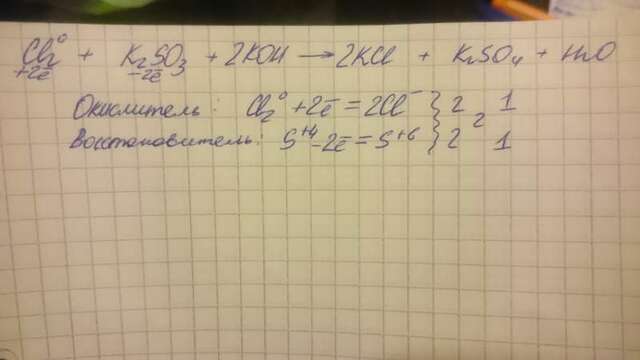 Cl₂⁰ + K₂SO₃ + 2KOH → 2KCl + K₂SO₄ + H₂O
+2ē −2ē
Окислитель: Cl₂⁰ + 2ē = 2Cl⁻ } 2 2 1
Восстановитель: S⁺⁴ − 2ē = S⁺⁶ } 2 1